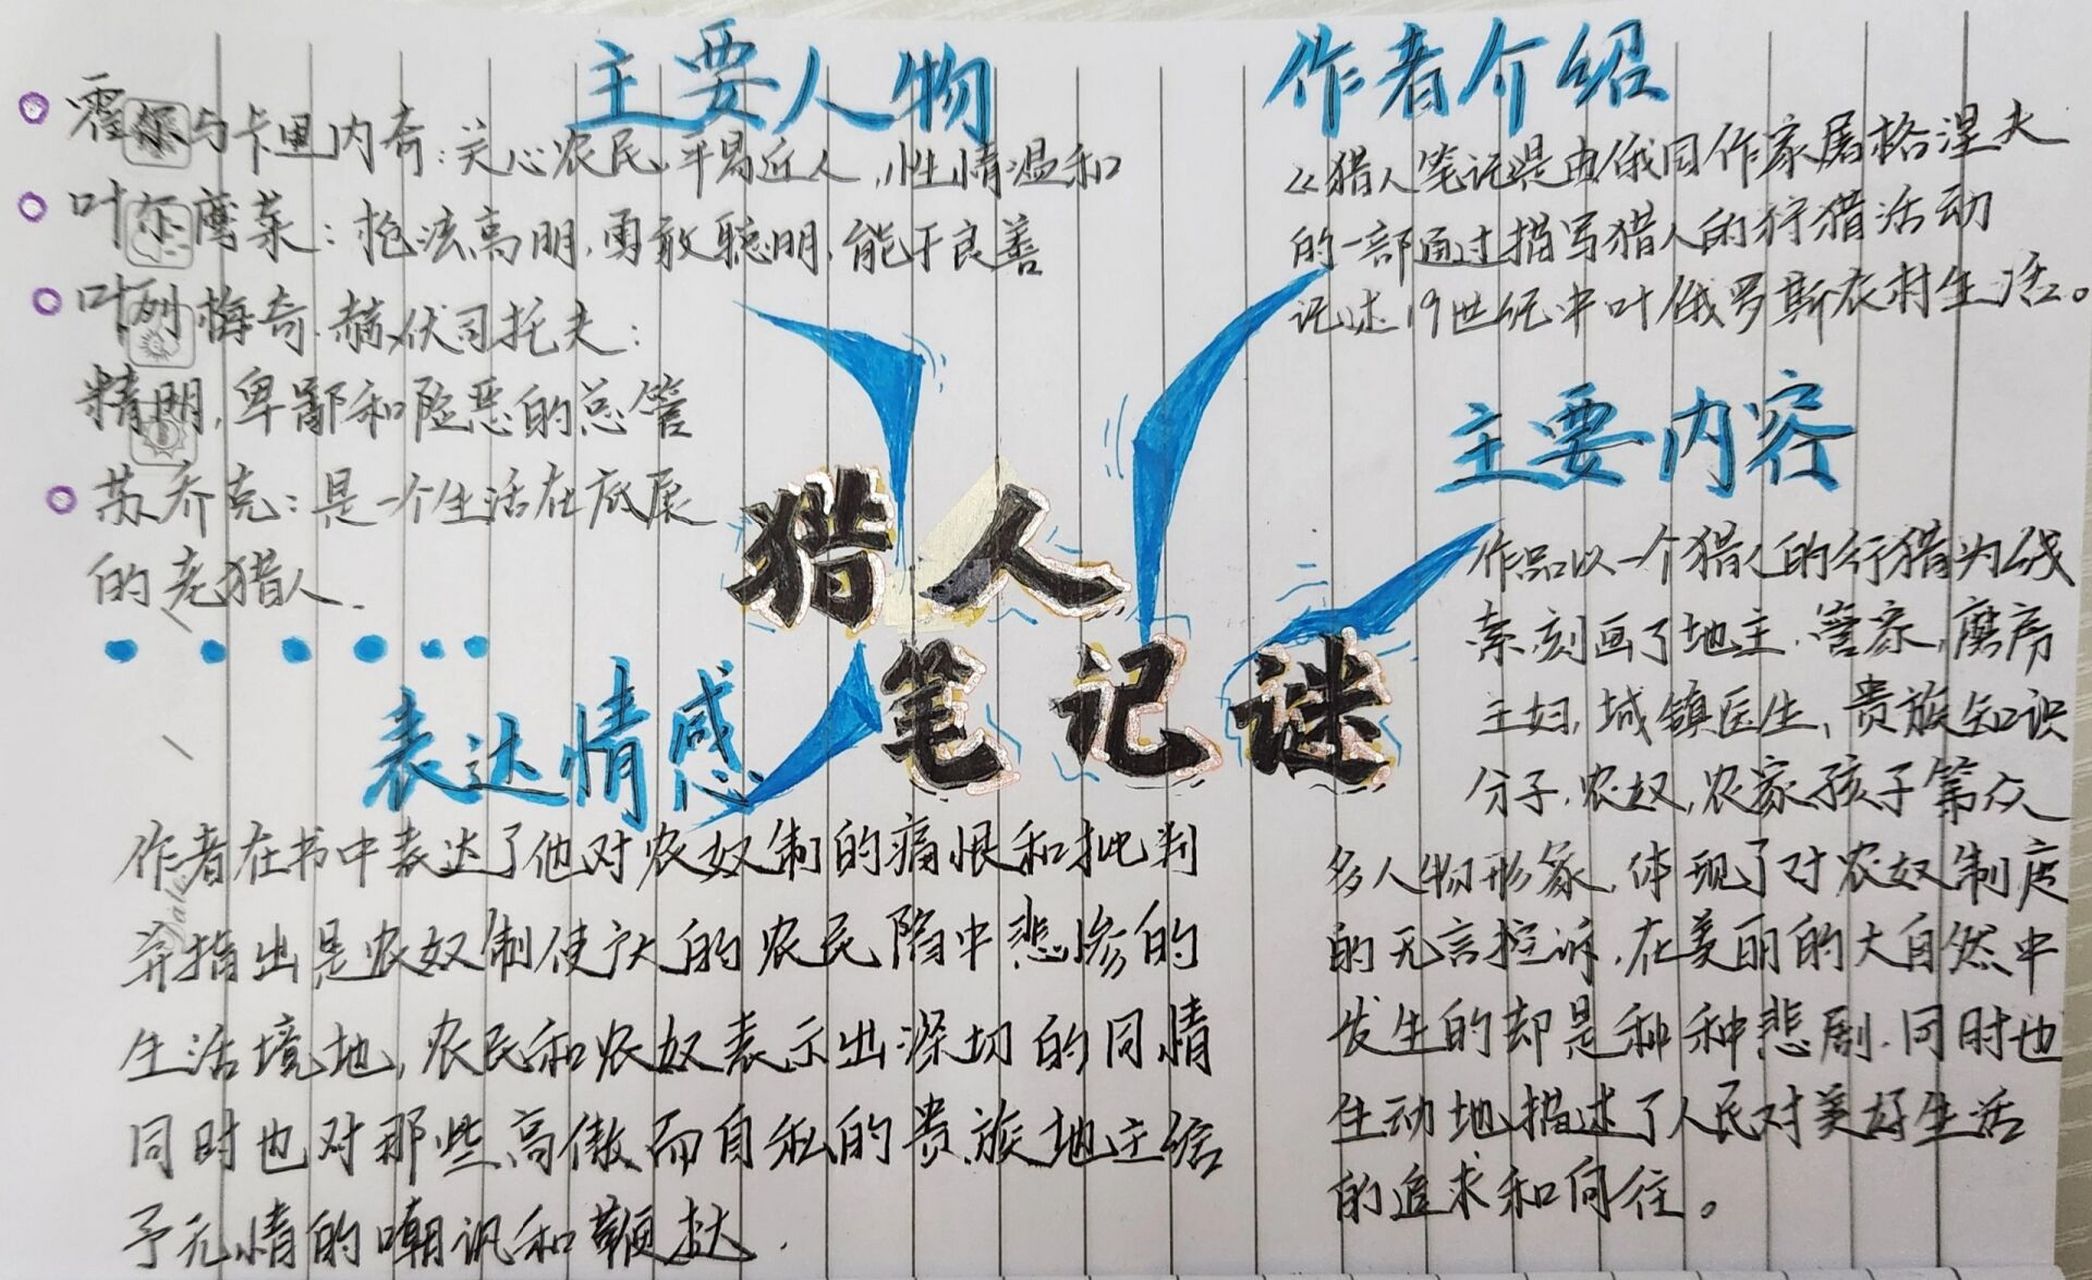 主要人物
霍尔与卡里内奇:关心农民,平易近人,性情温和
叶尔摩莱:抢法高明,勇敢聪明,能干良善
叶列梅奇.赫伏司托夫:
精明,卑鄙和险恶的总管
苏乔克:是一个生活在底层
的老猎人.
作者介绍
《猎人笔记是由俄国作家屠格涅夫
的一部通过描写猎人的狩猎活动
记述19世纪中叶俄罗斯农村生活。
猎人
笔记谜
主要内容
作品以一个猎人的行猎为线
索,刻画了地主.管家,磨房
主妇,城镇医生,贵族知识
分子,农奴,农家孩子等众
多人物形象,体现了对农奴制度
的无言控诉,在美丽的大自然中
发生的却是种种悲剧.同时也
生动地描述了人民对美好生活
的追求和向往。
表达情感
作者在书中表达了他对农奴制的痛恨和批判
并指出是农奴制使广大的农民陷中悲惨的
生活境地,农民和农奴表示出深切的同情
同时也对那些高傲而自私的贵族地主给
予无情的嘲讽和鞭挞.